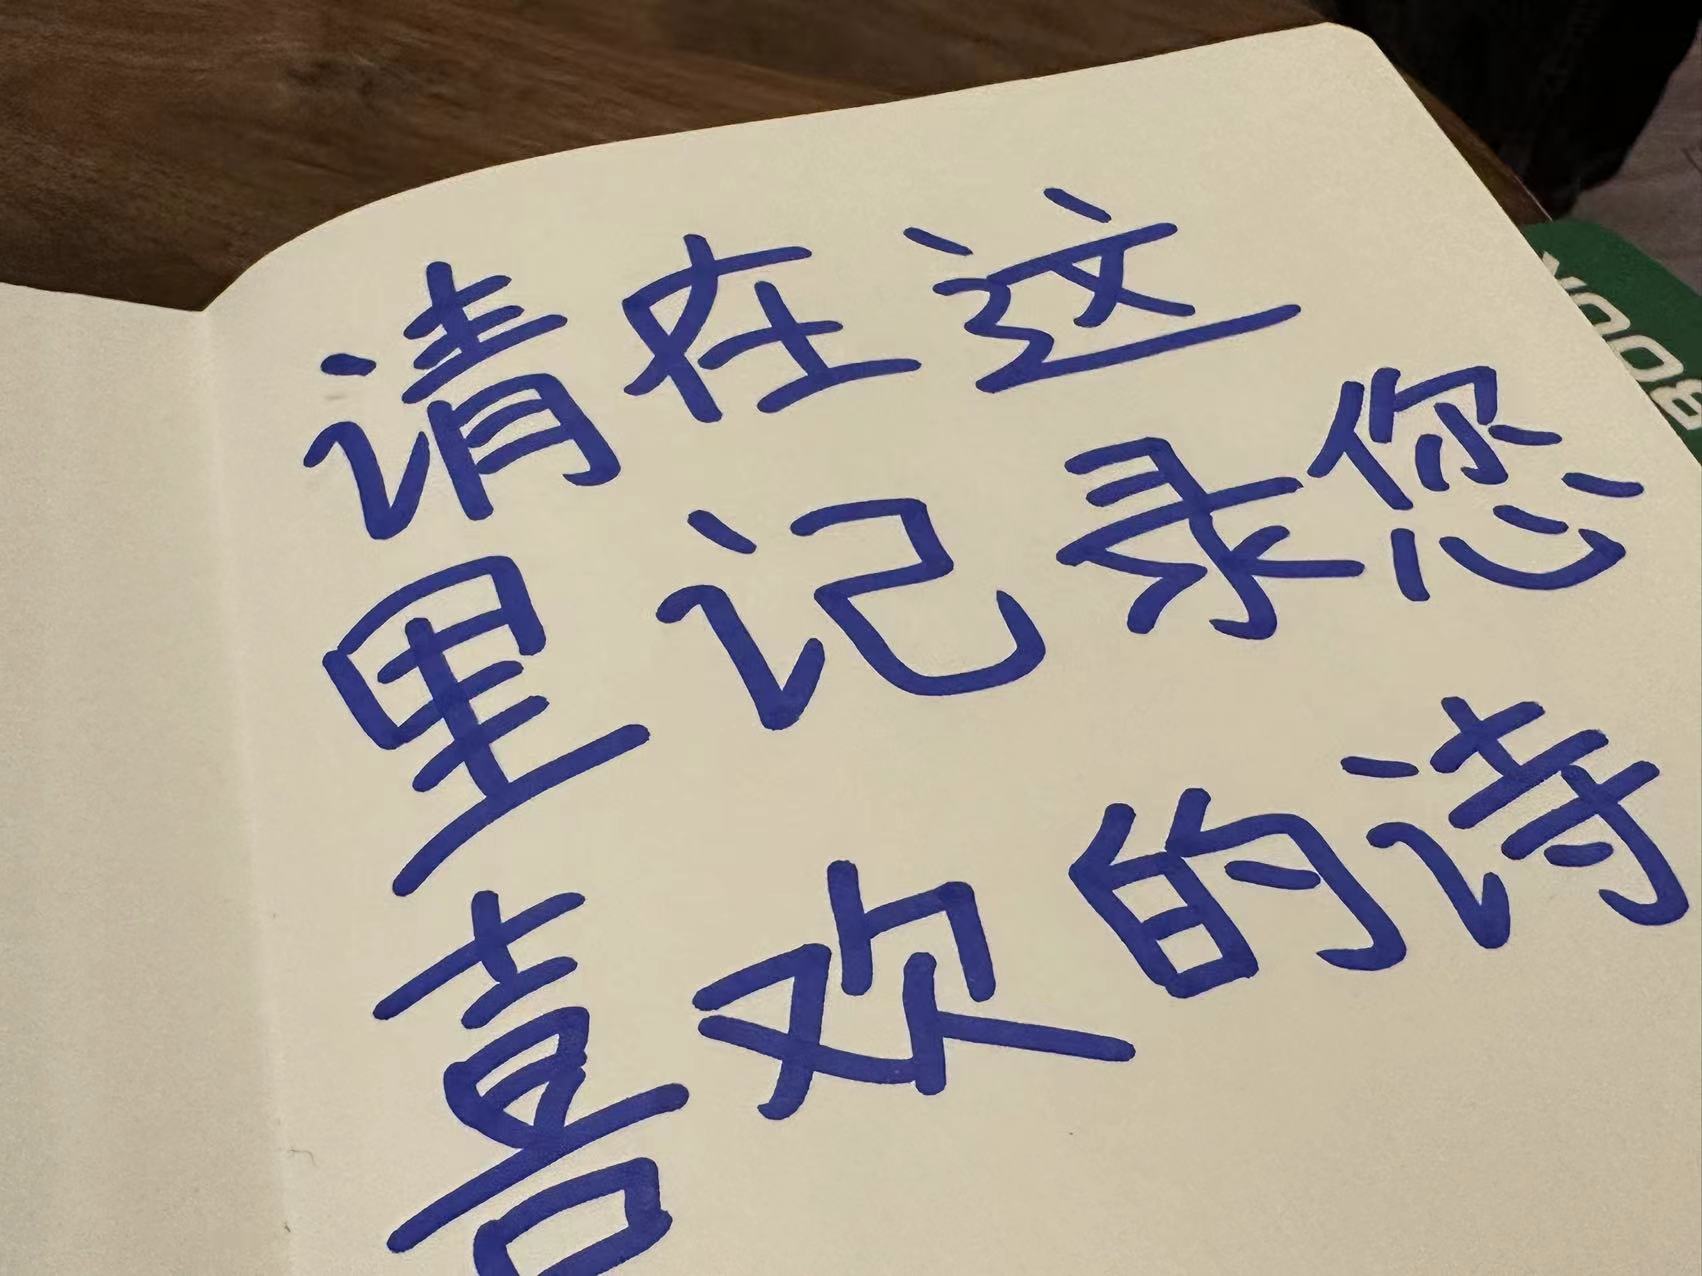 请在这
里记录您
喜欢的诗
BOOK